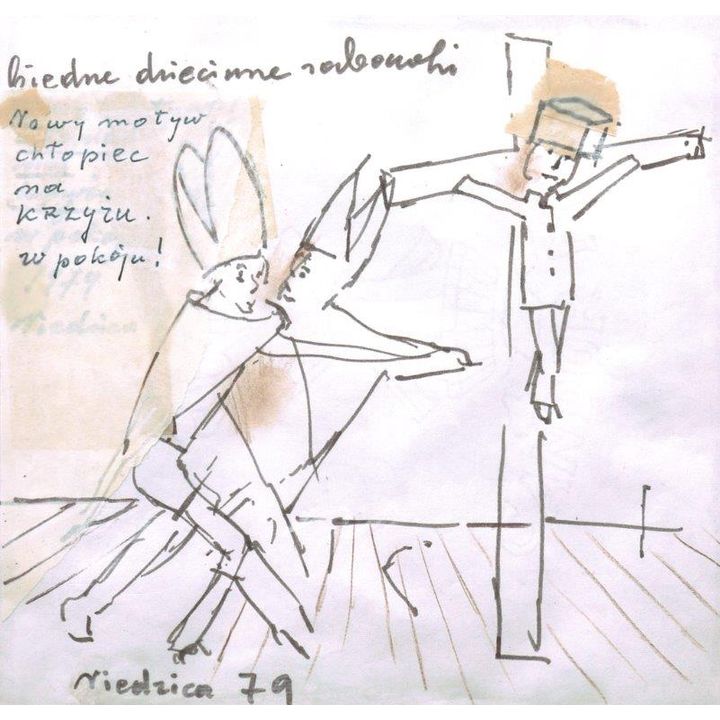 biedne dziecinne
Nowy motyw
chłopiec
na
krzyżu.
w pokoju!
79
Niedzica
Niedzica 79